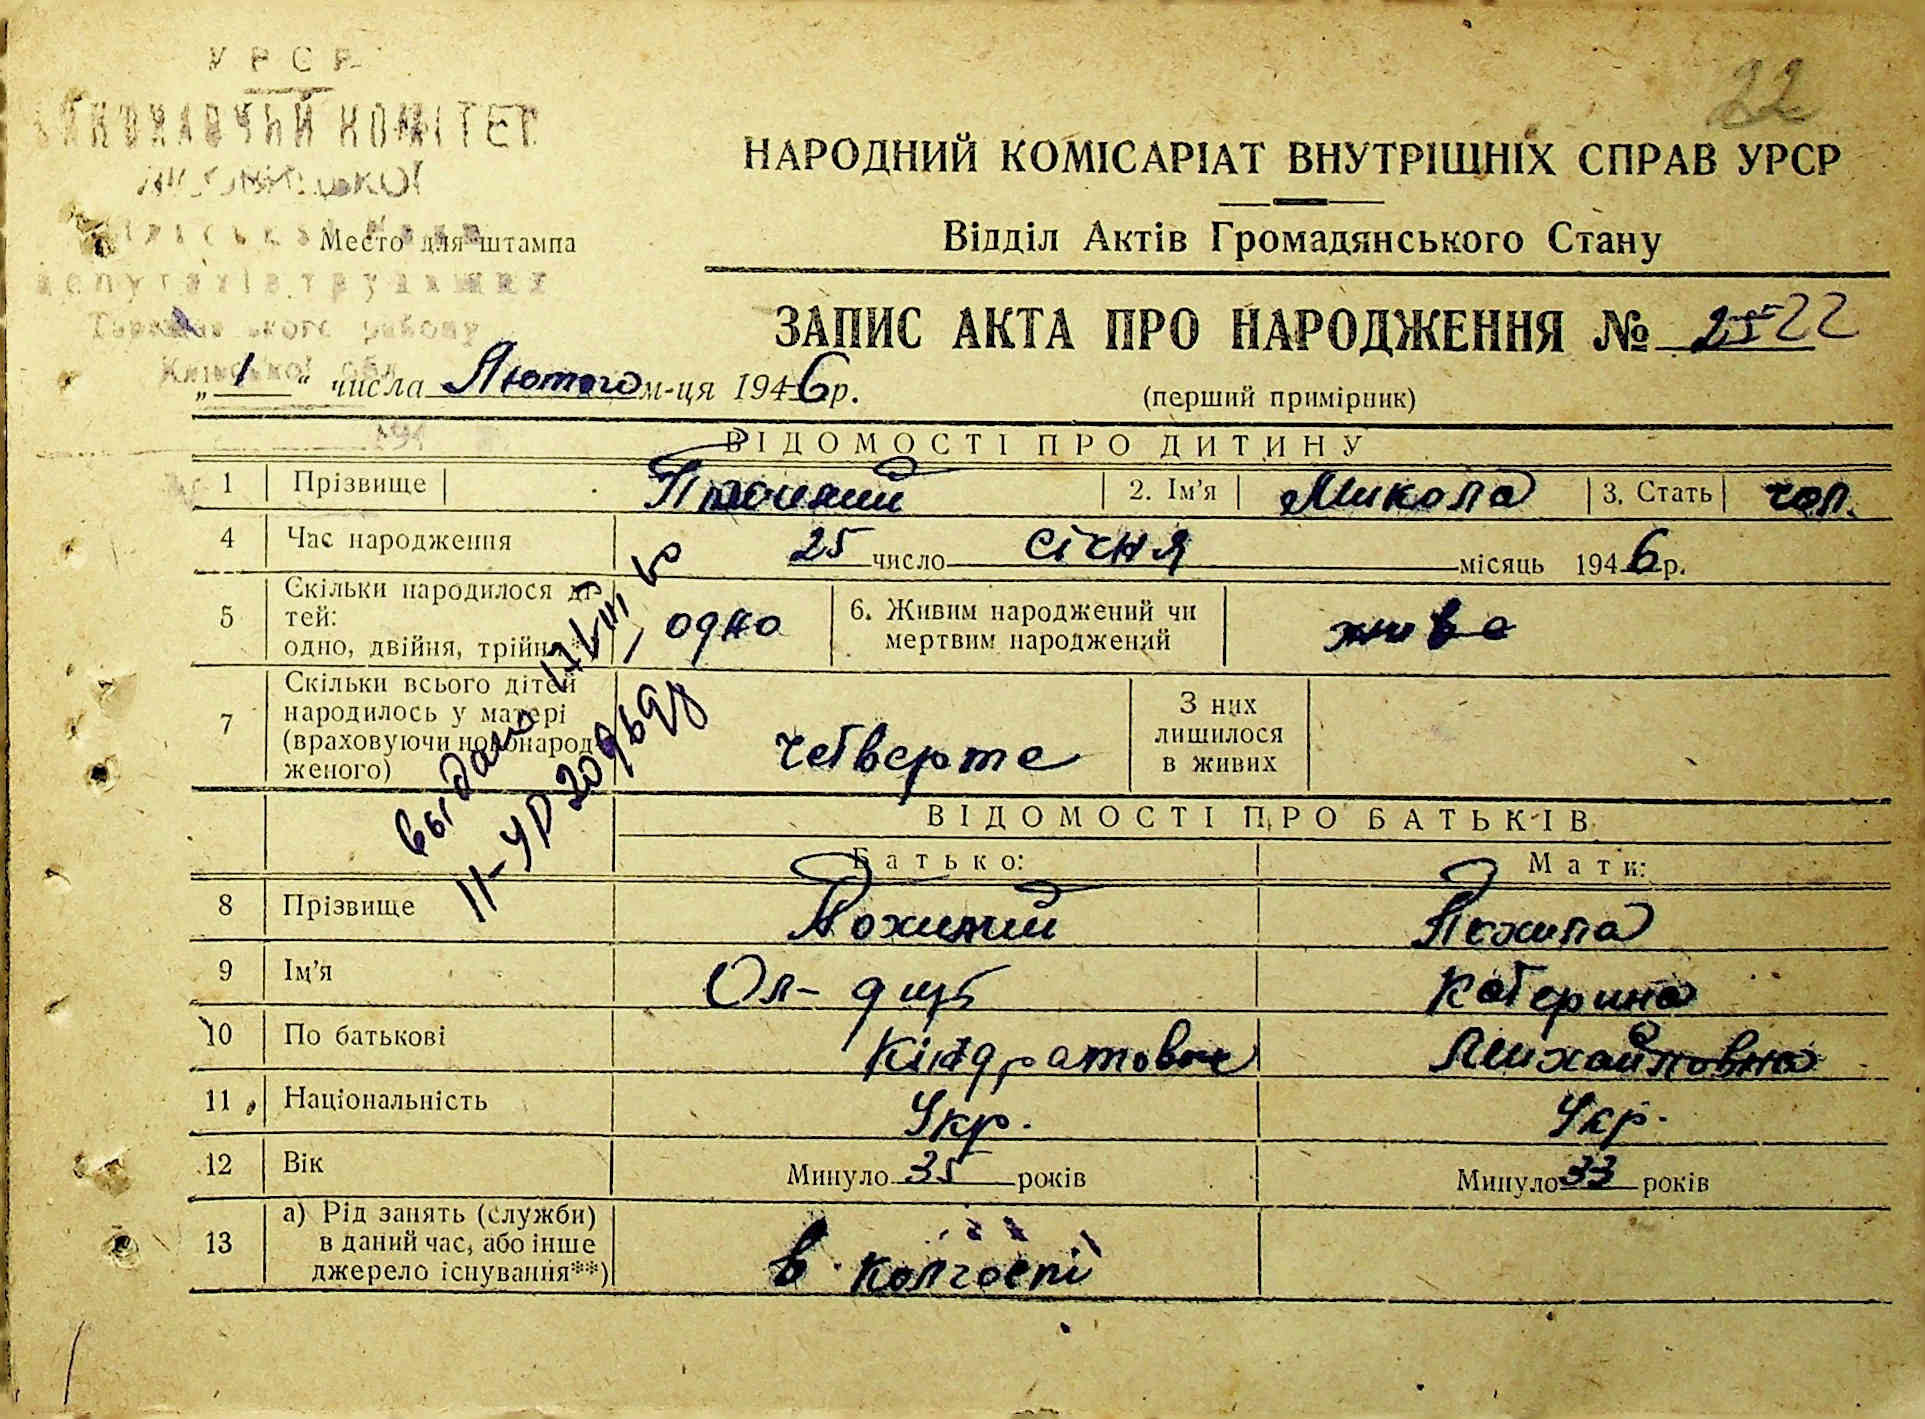 УРСР
ВИКОНАВЧИЙ КОМІТЕТ
22
НАРОДНИЙ КОМІСАРІАТ ВНУТРІШНІХ СПРАВ УРСР
Место для штампа
Відділ Актів Громадянського Стану
депутатів трудящих
району
Київської обл.
ЗАПИС АКТА ПРО НАРОДЖЕННЯ № 22
„ 1 “ числа Лютого м-ця 1946 р.
(перший примірник)
194
ВІДОМОСТІ ПРО ДИТИНУ
1 Прізвище 2. Ім'я Микола 3. Стать чол.
4 Час народження 25 число січня місяць 1946 р.
5 Скільки народилося ді-
тей:
одно, двійня, трійня*) одно 6. Живим народжений чи
мертвим народжений живе
7 Скільки всього дітей
народилось у матері
(враховуючи новонарод-
женого) четверте З них
лишилося
в живих
выдано
II-УР
ВІДОМОСТІ ПРО БАТЬКІВ
Батько: Мати:
8 Прізвище
9 Ім'я Катерина
10 По батькові Кіндратович Михайловна
11 Національність Укр. Укр.
12 Вік Минуло 35 років Минуло 33 років
13 а) Рід занять (служби)
в даний час, або інше
джерело існування**) в колгоспі